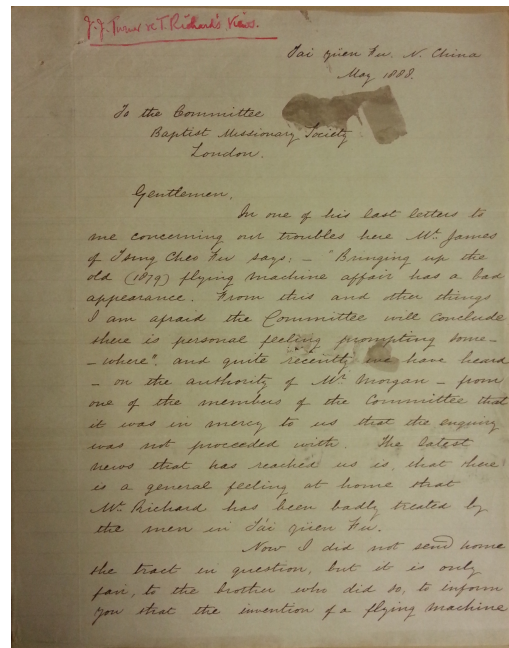 J. J. Turner re T. Richard's Views.
Tai Yuen Fu. N. China
May 1888.
To the Committee
Baptist Missionary Society
London.
Gentlemen,
In one of his last letters to
me concerning our troubles here Mr. James
of Tsing Cheo Fu says; – "Bringing up the
old (1879) flying machine affair has a bad
appearance. From this and other things
I am afraid the Committee will conclude
there is personal feeling prompting some-
-where", and quite recently we have heard
– on the authority of Mr. Morgan – from
one of the members of the Committee that
it was in mercy to us that the enquiry
was not proceeded with. The latest
news that has reached us is, that there
is a general feeling at home that
Mr. Richard has been badly treated by
the men in Tai Yuen Fu.
Now I did not send home
the tract in question, but it is only
fair, to the brother who did so, to inform
you that the invention of a flying machine